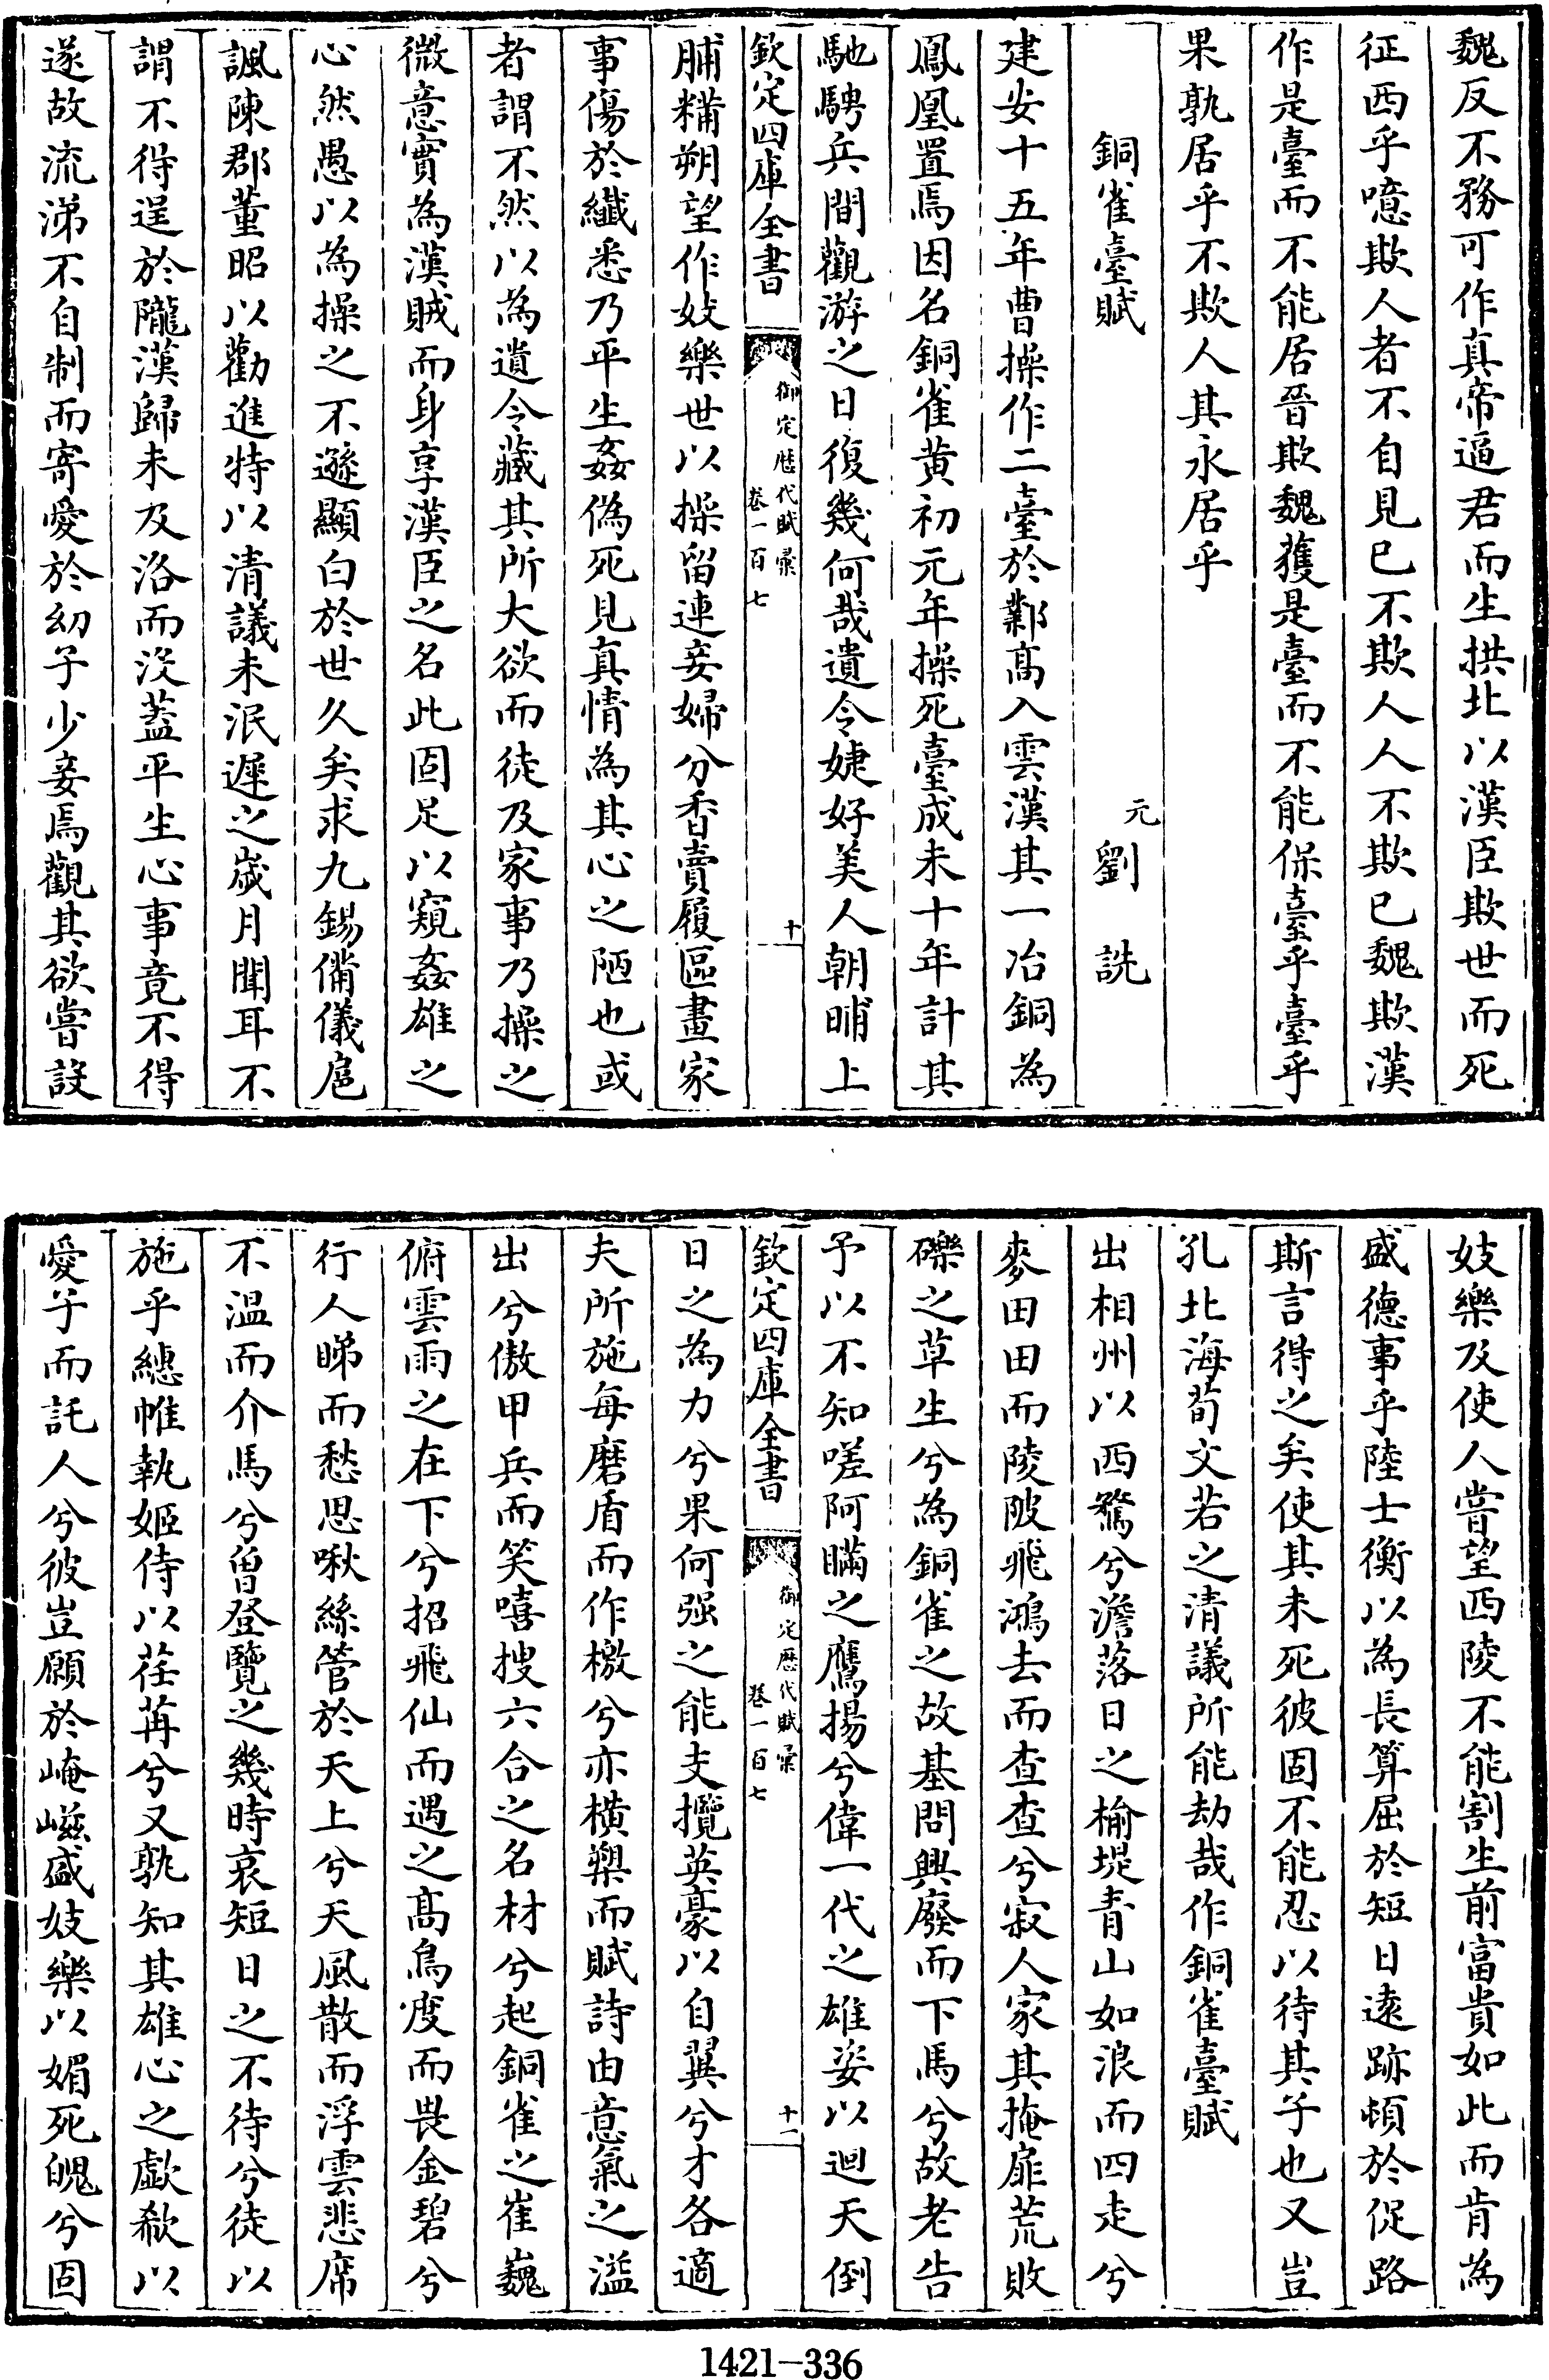 魏反不務可作真帝逼君而生拱北以漢臣欺世而死
征西乎噫欺人者不自見已不欺人人不欺已魏欺漢
作是臺而不能居晉欺魏獲是臺而不能保臺乎臺乎
果孰居乎不欺人其永居乎
銅雀臺賦
元
劉詵
建安十五年曹操作二臺於鄴高入雲漢其一冶銅為
鳳凰置焉因名銅雀黄初元年操死臺成未十年計其
馳騁兵間觀游之日復幾何哉遺令婕妤美人朝晡上
欽定四庫全書
御定歴代賦彚
卷一百七
十
脯糒朔望作妓樂世以操留連妾婦分香賣履區畫家
事傷於纖悉乃平生姦偽死見真情為其心之陋也或
者謂不然以為遺令藏其所大欲而徒及家事乃操之
微意實為漢賊而身享漢臣之名此固足以窺姦雄之
心然愚以為操之不遜顯白於世久矣求九錫備儀扈
諷陳郡董昭以勸進特以清議未泯遲之嵗月聞耳不
謂不得逞於隴漢歸未及洛而沒葢平生心事竟不得
遂故流涕不自制而寄愛於幼子少妾焉觀其欲嘗設
妓樂及使人嘗望西陵不能割生前富貴如此而肯為
盛德事乎陸士衡以為長算屈於短日逺跡頓於促路
斯言得之矣使其未死彼固不能忍以待其子也又豈
孔北海荀文若之清議所能劫哉作銅雀臺賦
出相州以西騖兮澹落日之榆堤青山如浪而四走兮
麥田田而陵陂飛鴻去而杳杳兮寂人家其掩扉荒敗
礫之草生兮為銅雀之故基問興廢而下馬兮故老告
予以不知嗟阿瞞之鷹揚兮偉一代之雄姿以迴天倒
欽定四庫全書
御定歴代賦彚
卷一百七
十一
日之為力兮果何强之能支攬英豪以自翼兮才各適
夫所施每磨盾而作檄兮亦横槊而賦詩由意氣之溢
出兮傲甲兵而笑嘻搜六合之名材兮起銅雀之崔巍
俯雲雨之在下兮招飛仙而遇之髙鳥度而畏金碧兮
行人睇而愁思啾絲管於天上兮天風散而浮雲悲席
不温而介馬兮曽登覽之幾時哀短日之不待兮徒以
施乎繐帷執姬侍以荏苒兮又孰知其雄心之歔欷以
愛子而託人兮彼豈願於崦嵫盛妓樂以媚死魄兮固
1421-336